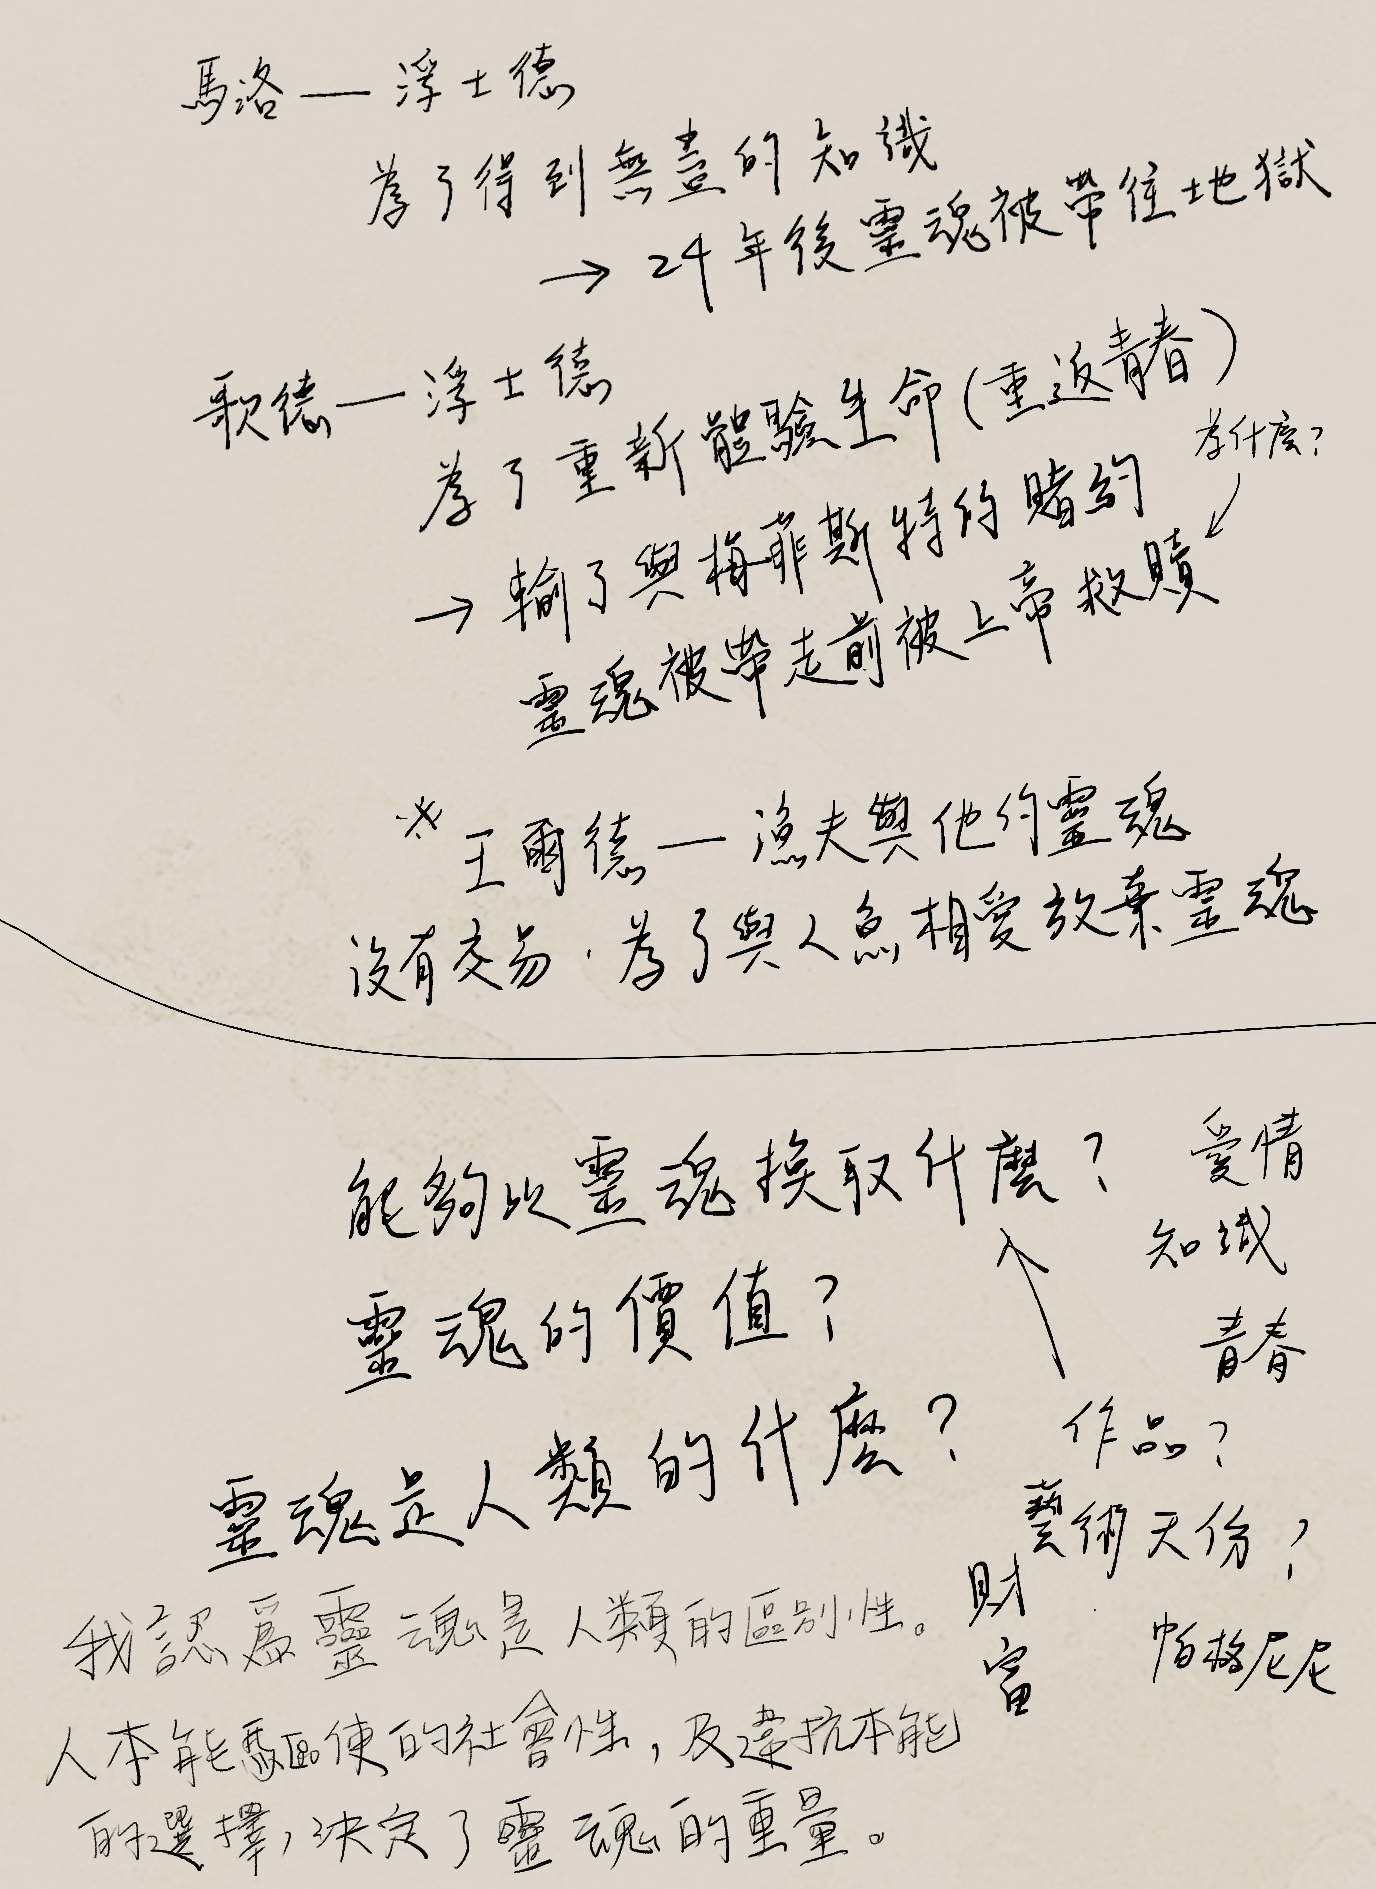 馬洛—浮士德
為了得到無盡的知識
→24年後靈魂被帶往地獄
歌德—浮士德
為了重新體驗生命(重返青春)
為什麼?
→輸了與梅菲斯特的賭約
靈魂被帶走前被上帝救贖
※王爾德—漁夫與他的靈魂
沒有交易.為了與人魚相愛放棄靈魂
能夠以靈魂換取什麼?
愛情
知識
青春
作品?
藝術天份?
財富
帕格尼尼
靈魂的價值?
靈魂是人類的什麼?
我認為靈魂是人類的區別性。
人本能驅使的社會性,及違抗本能
的選擇,決定了靈魂的重量。